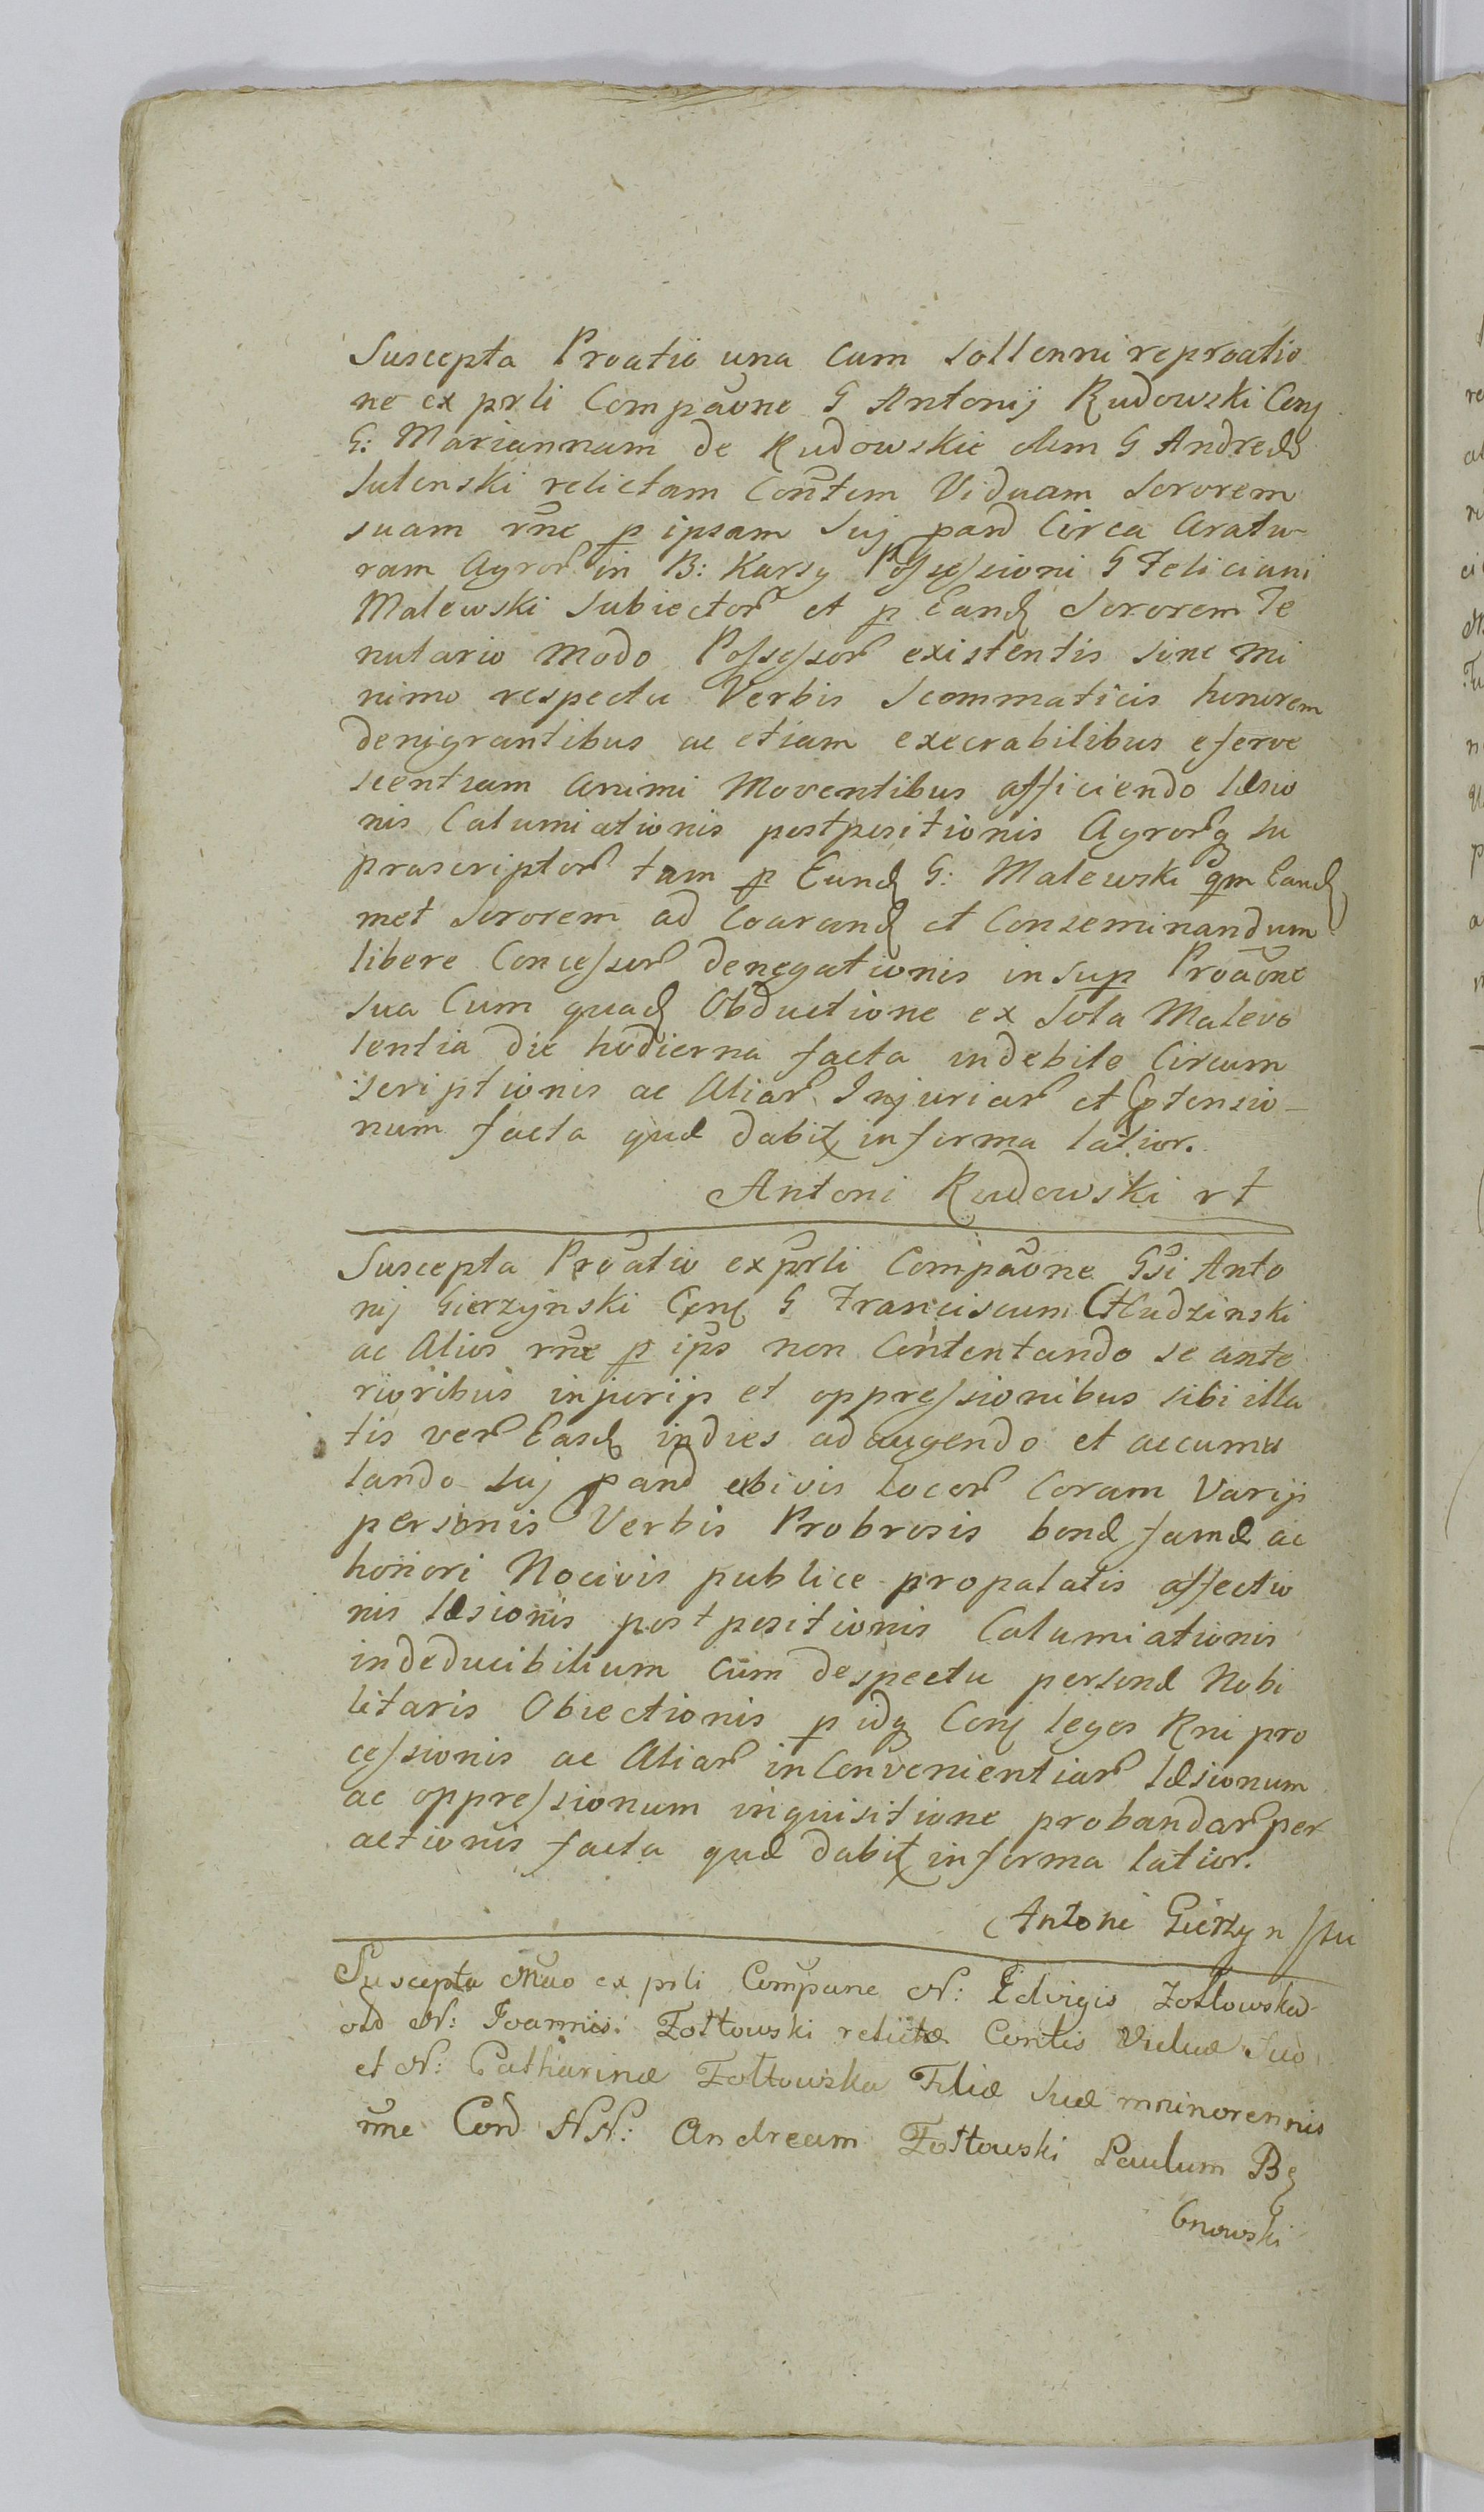 Suscepta Proatio una cum sollenni reproatio
ne ex prli Compaone G Antonij Rudowski Conq
G: Mariannam de Rudowskie olim G Andreæ
Sulenski relictam Contem Viduam Sororem
suam rne p ipsam Suj pand Circa Aratu-
ram Agror in B: Karsy Possessioni G Feliciani
Malewski Subiector et p Eand Sororem Te
nutario modo Possessor existentis sine mi
nimo respectu Verbis Scommaticis honorem
denigrantibus ac etiam execrabilibus eferve
scentiam animi Moventibus afficiendo læsio
nis Calumiationis postpositionis Agrorq su
prascriptor tam p Eund G: Malewski qm Eand
met Sororem ad Coarand et Conseminandum
libere Concessor denegationis insup Proaone
sua Cum quad Obductione ex Sola Malevo
lentia die hodierna facta indebite Circum
scriptionis ac Aliar Injuriar et Ptensio-
num facta quæ dabit in forma latior.
Antoni Rudowski rt
Suscepta Proatio ex prli Compaone Gsi Anto
nij Gierzynski Conq G Franciscum Chudzinski
ac Alios rne p ips non Contentando se ante
rioribus injurijs et oppressionibus sibi illa
tis ver Easd indies adaugendo et accumu
lando Suj pand ubivis locor Coram Varijs
personis Verbis Probrosis bonæ famæ ac
honori Nocivis publice propalatis affectio
nis læsionis postpositionis Calumiationis
indeducibilium cum despectu personæ Nobi
litaris Obiectionis p idq Conq leges Rni pro
cessionis ac Aliar inConvenientiar læsionum
ac oppressionum inquisitione probandar per
actionis facta quæ dabit in forma latior.
Antoni Gierzynski
Suscepta Mao ex prli Compane N: Edvigis Zołtowska
old N: Joannis Zołtowski relictæ Contis Viduæ suo
et N: Catharinæ Zołtowska Filiæ suæ minorennis
rne Cond NN: Andream Zołtowski Paulum Bę
Gnowski